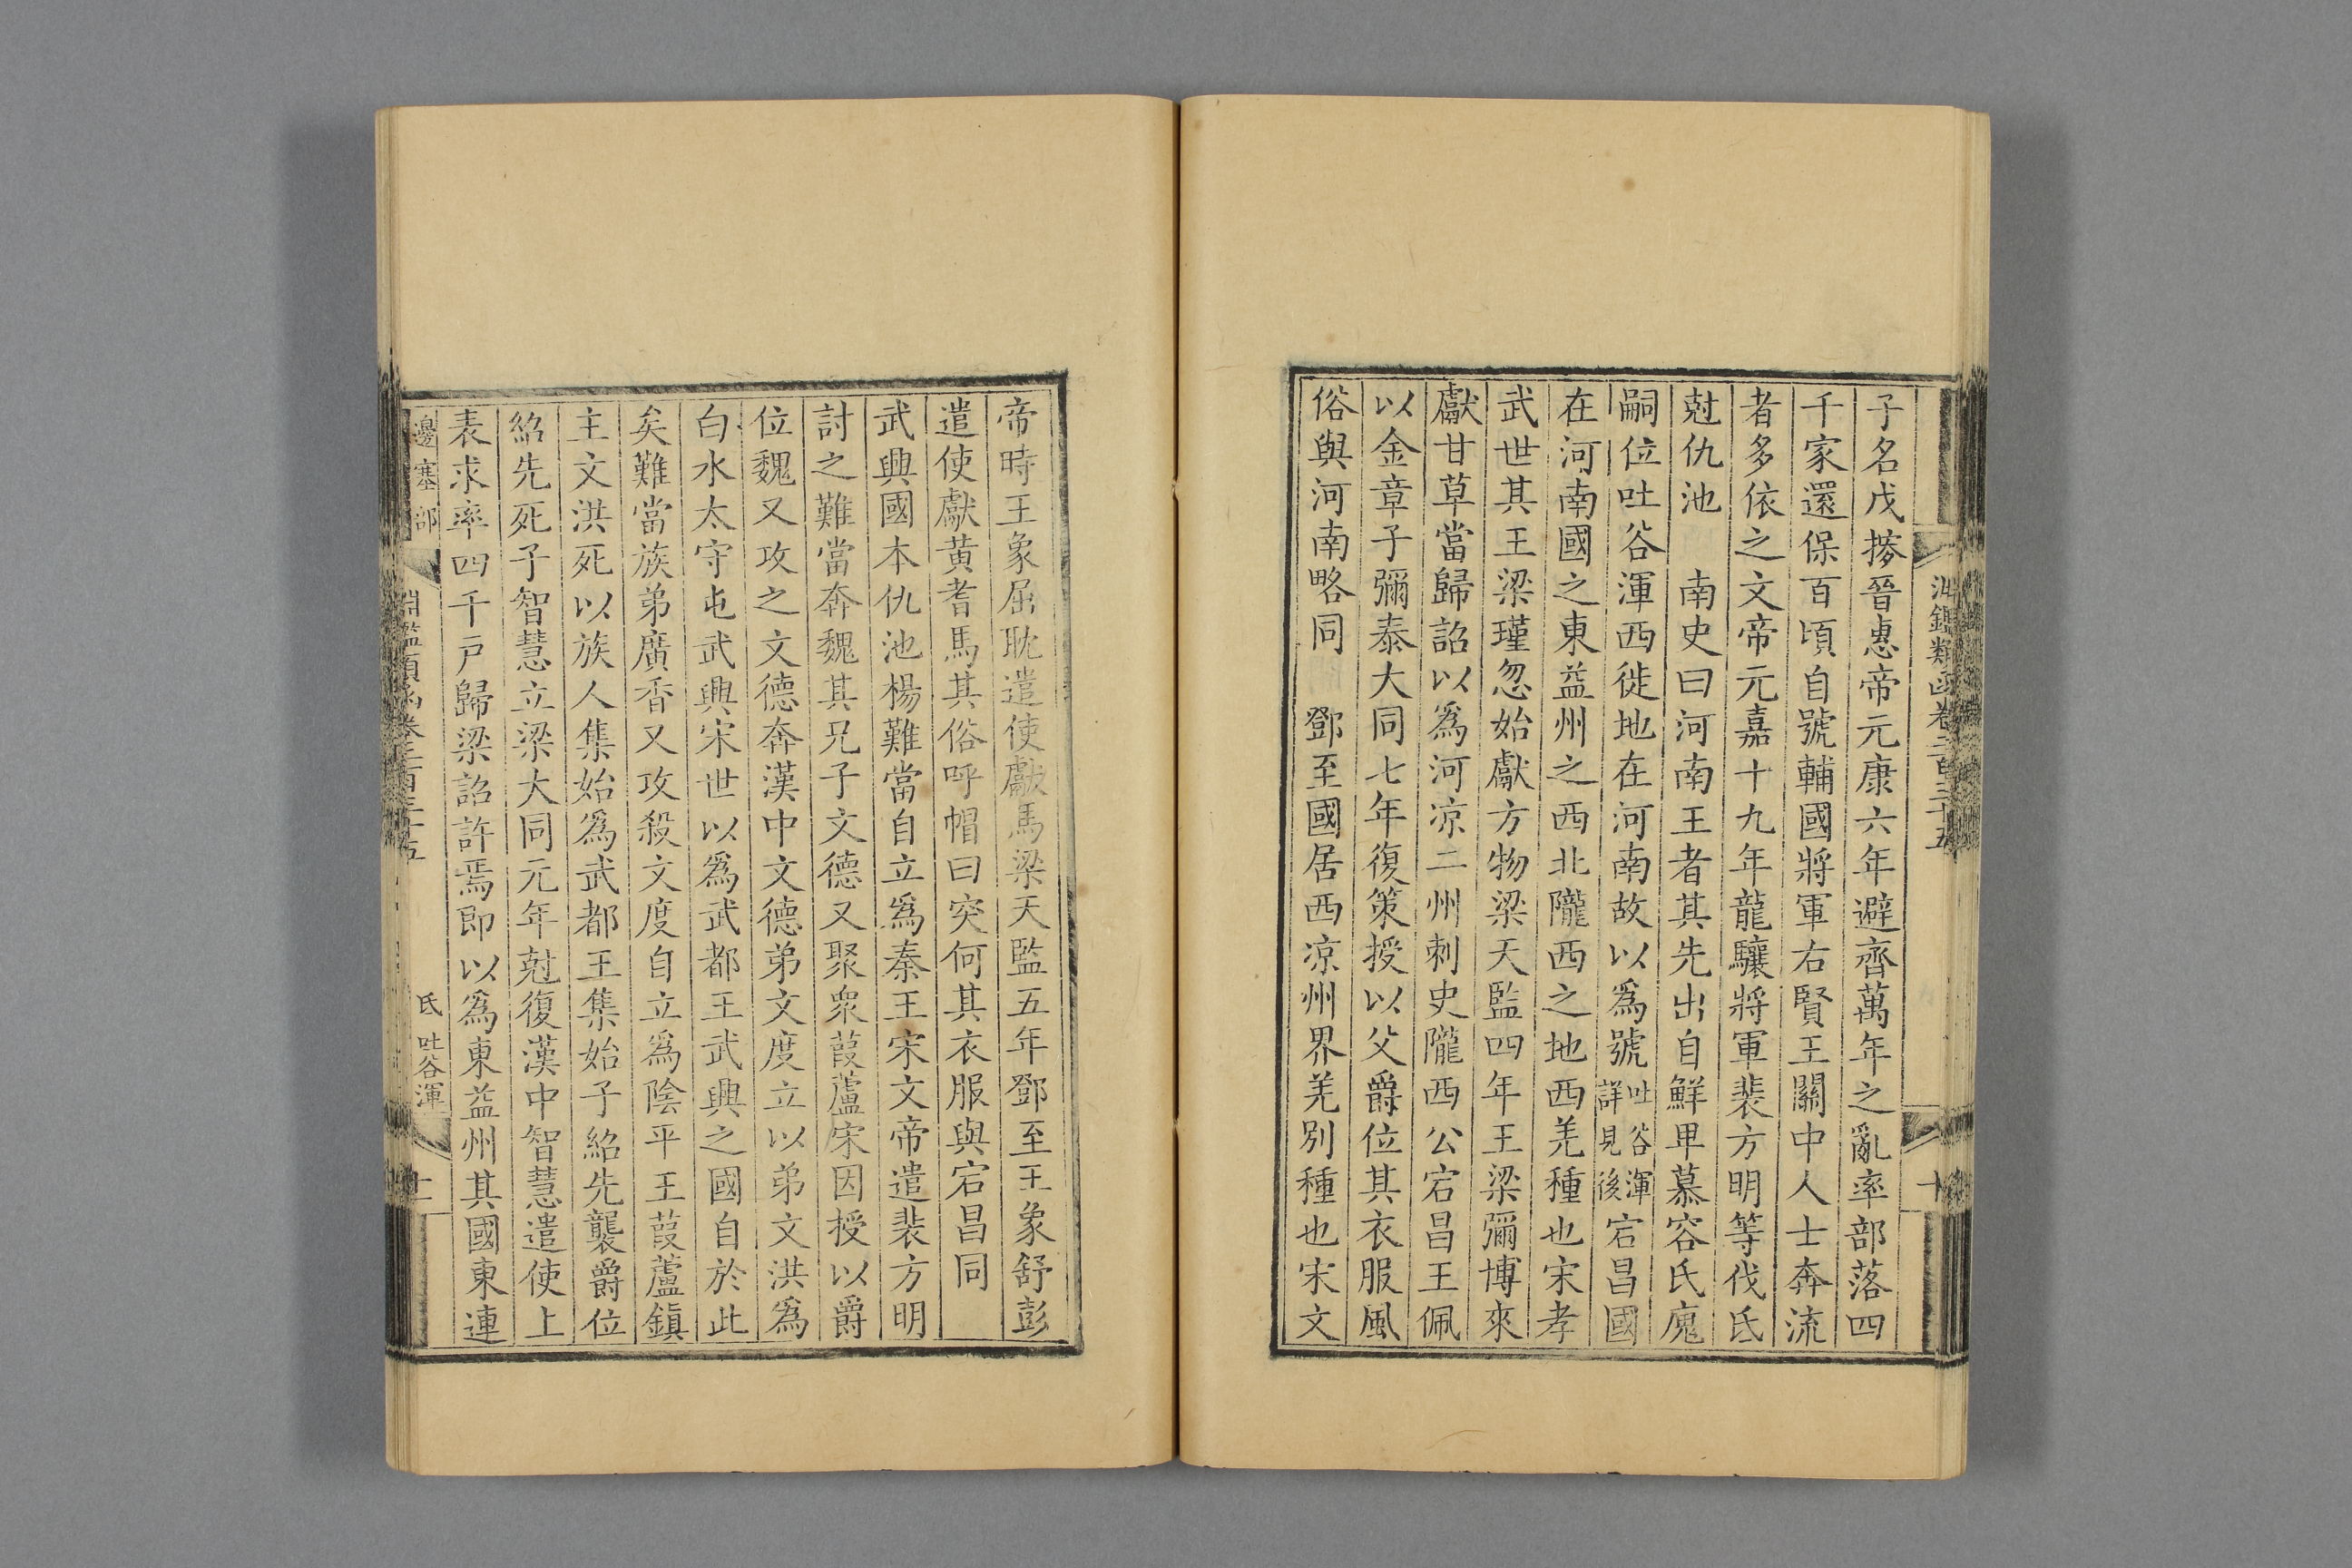 淵鑑類函卷二百三十五
十
子名戊搽晉惠帝元康六年避齊萬年之亂率部落四
千家還保百頃自號輔國將軍右賢王關中人士奔流
者多依之文帝元嘉十九年龍驤將軍裴方明等伐氐
尅仇池　南史曰河南王者其先出自鮮卑慕容氏廆
嗣位吐谷渾西徙地在河南故以爲號吐谷渾詳見後宕昌國
在河南國之東益州之西北隴西之地西羌種也宋孝
武世其王梁瑾忽始獻方物梁天監四年王梁彌博來
獻甘草當歸詔以爲河凉二州刺史隴西公宕昌王佩
以金章子彌泰大同七年復策授以父爵位其衣服風
俗與河南略同　鄧至國居西凉州界羌別種也宋文
帝時王象屈耽遣使獻馬梁天監五年鄧至王象舒彭
遣使獻黄耆馬其俗呼帽曰突何其衣服與宕昌同
武興國本仇池楊難當自立爲秦王宋文帝遣裴方明
討之難當奔魏其兄子文德又聚衆葭蘆宋因授以爵
位魏又攻之文德奔漢中文德弟文度立以弟文洪爲
白水太守屯武興宋世以爲武都王武興之國自於此
矣難當族弟廣香又攻殺文度自立爲陰平王葭蘆鎮
主文洪死以族人集始爲武都王集始子紹先襲爵位
紹先死子智慧立梁大同元年尅復漢中智慧遣使上
表求率四千戸歸梁詔許焉即以爲東益州其國東連
邊塞部
淵鑑類函卷二百三十五
氐　吐谷渾
十一